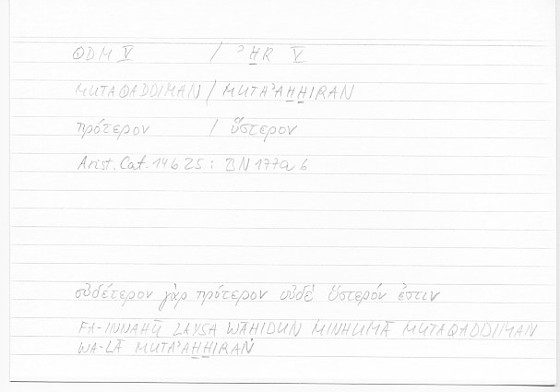 QDM V / ʾH̱R V
MUTAQADDIMAN / MUTAʾAH̱H̱IRAN
πρότερον / ὕστερον
Arist. Cat. 14b25: BN 177a6
οὐδέτερον γὰρ πρότερον οὐδὲ ὕστερόν ἐστιν
FA-INNAHŪ LAYSA WĀḤIDUN MINHUMĀ MUTAQADDIMAN
WA-LĀ MUTAʾAH̱H̱IRAN